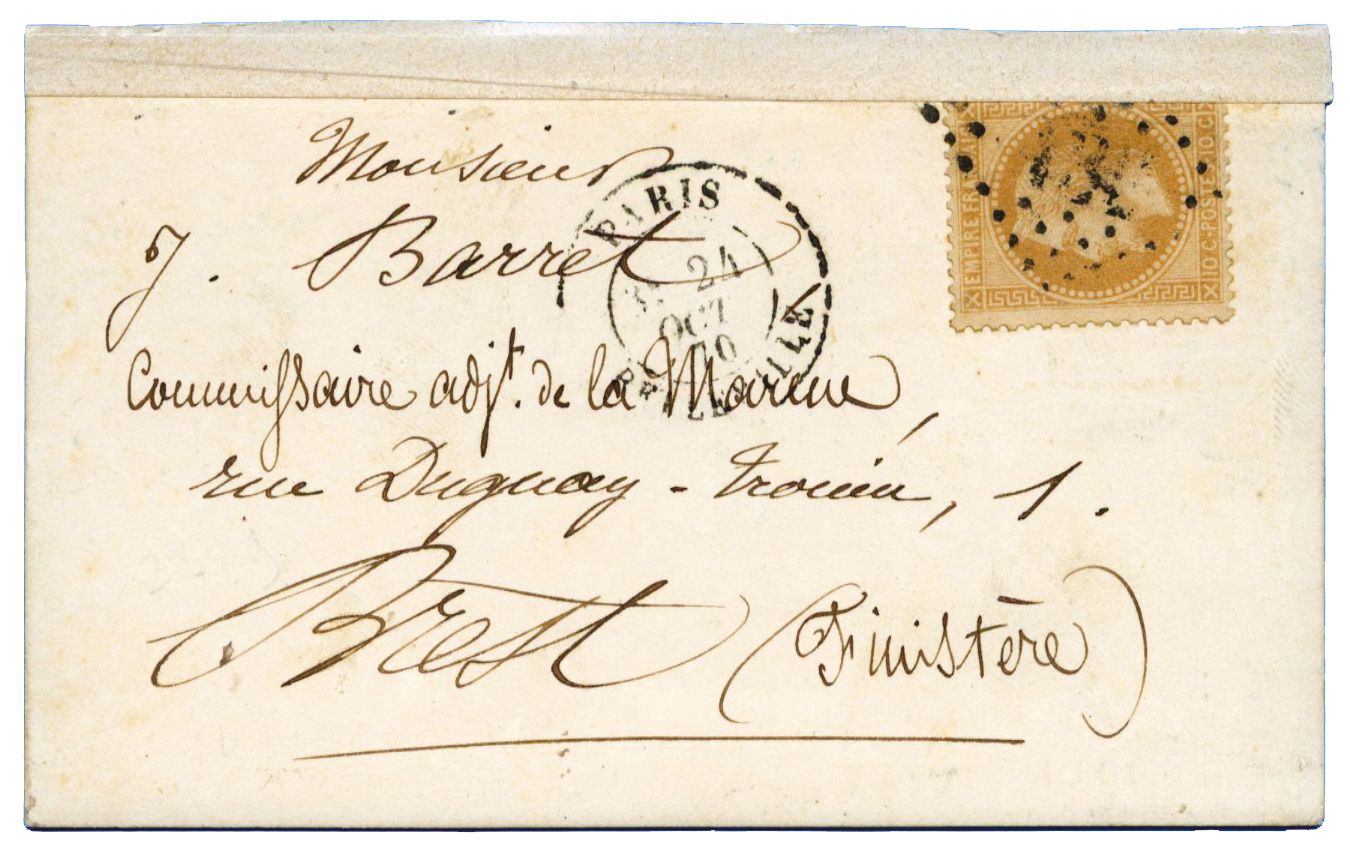 Monsieur
J. Barret
Commissaire adjt. de la Marine,
rue Duguay-Trouin, 1.
Brest (Finistère)
PARIS
24
OCT
70
EMPIRE FRANÇAIS
10 C
POSTES
10 C